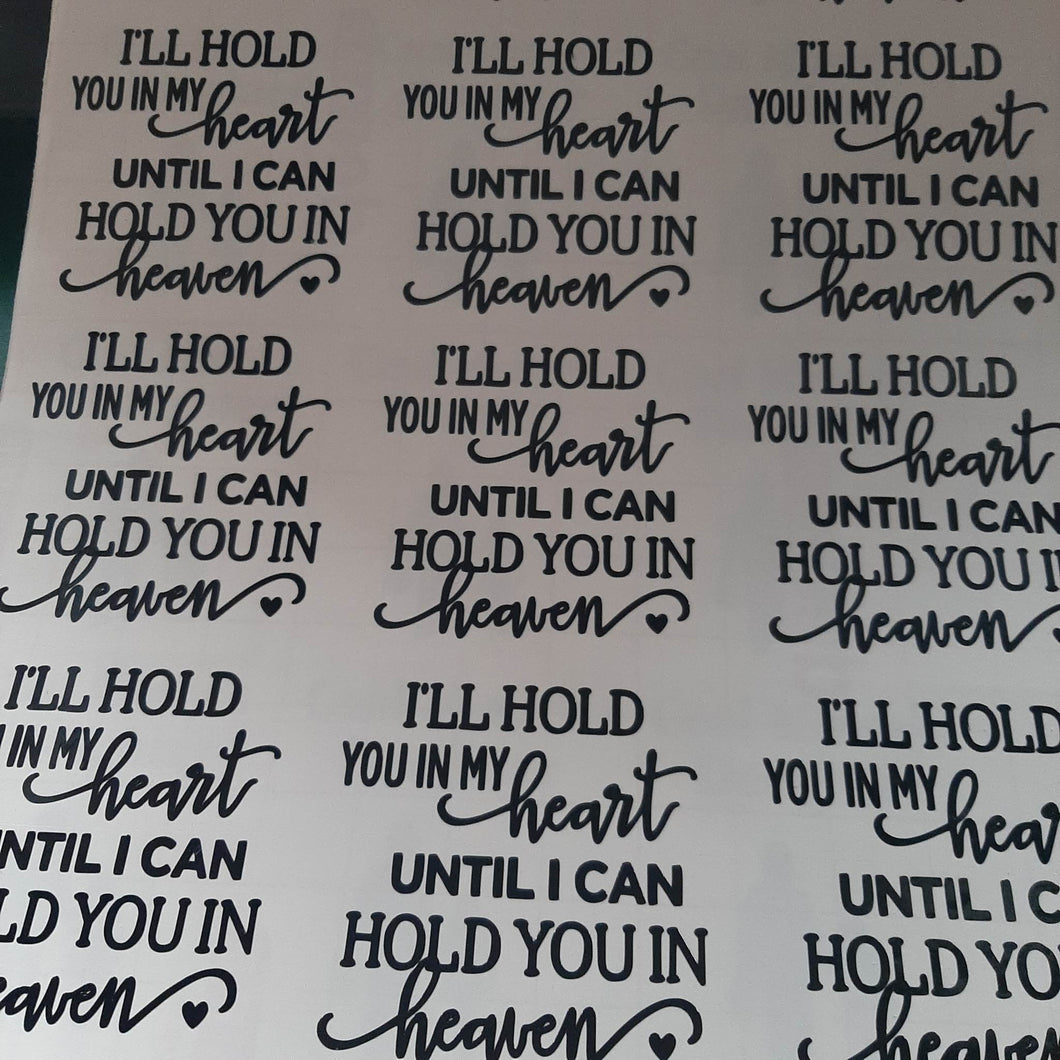 I'LL HOLD
YOU IN MY heart
UNTIL I CAN
HOLD YOU IN
heaven
I'LL HOLD
YOU IN MY heart
UNTIL I CAN
HOLD YOU IN
heaven
I'LL HOLD
YOU IN MY heart
UNTIL I CAN
HOLD YOU IN
heaven
I'LL HOLD
YOU IN MY heart
UNTIL I CAN
HOLD YOU IN
heaven
I'LL HOLD
YOU IN MY heart
UNTIL I CAN
HOLD YOU IN
heaven
I'LL HOLD
YOU IN MY heart
UNTIL I CAN
HOLD YOU I
heaven
I'LL HOLD
IN MY heart
NTIL I CAN
LD YOU IN
eaven
I'LL HOLD
YOU IN MY heart
UNTIL I CAN
HOLD YOU IN
heaven
I'LL HOLD
YOU IN MY hear
UNTIL I C
HOLD YO
heaven